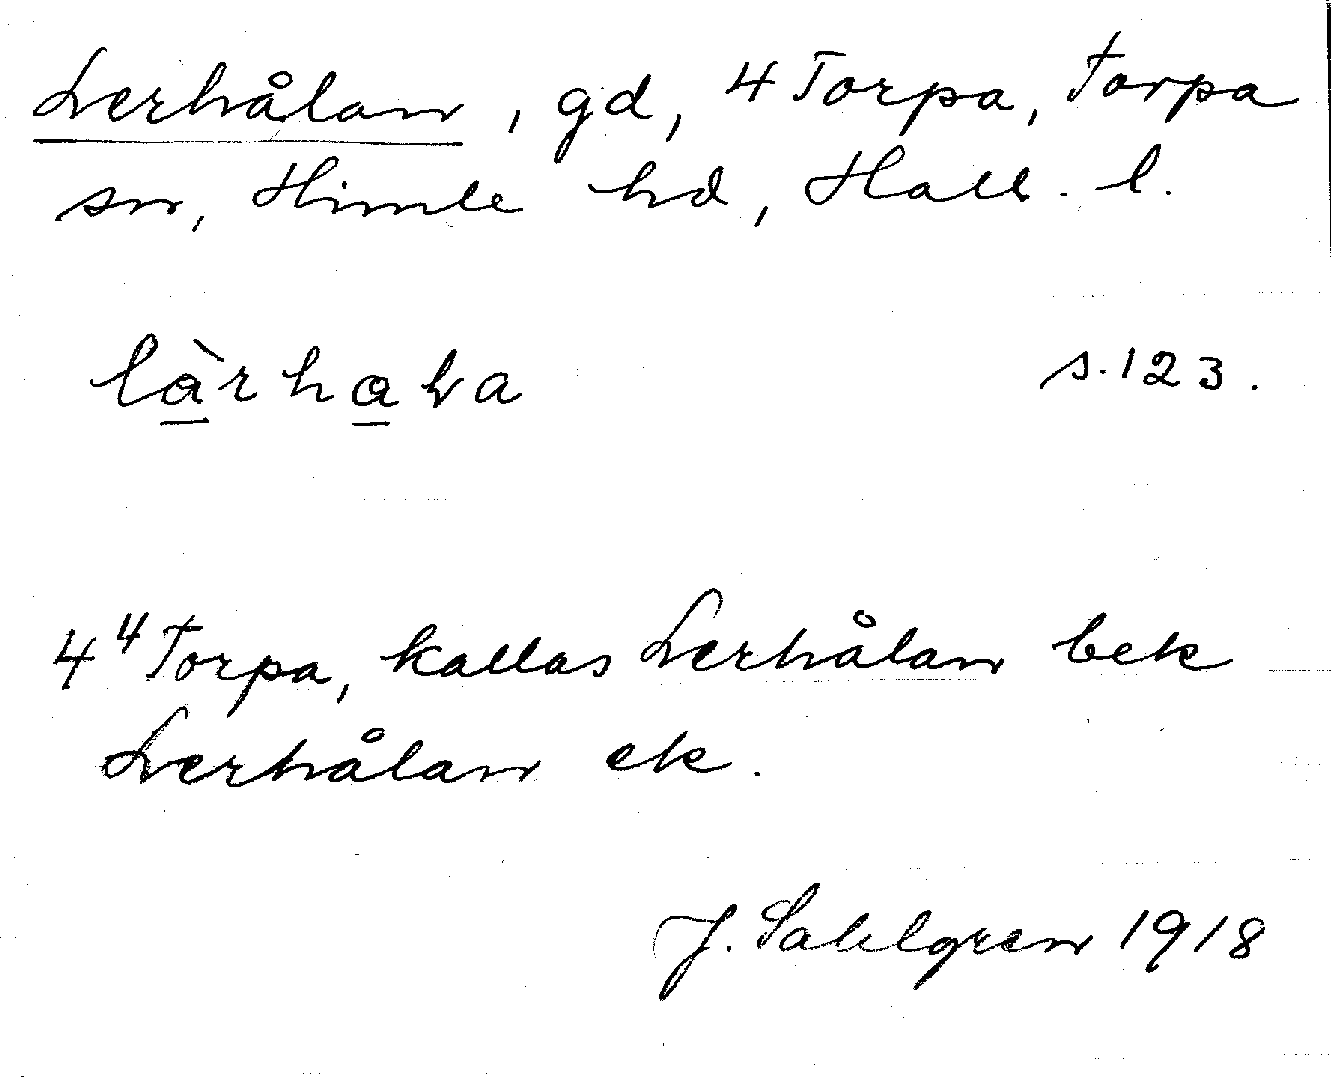 Lerhålan, gd, 4 Torpa, Torpa
sn, Himle hd, Hall. l.
làrhaLa s.123.
4⁴ Torpa, kallas Lerhålan bek
Lerhålan ek.
J. Sahlgren 1918